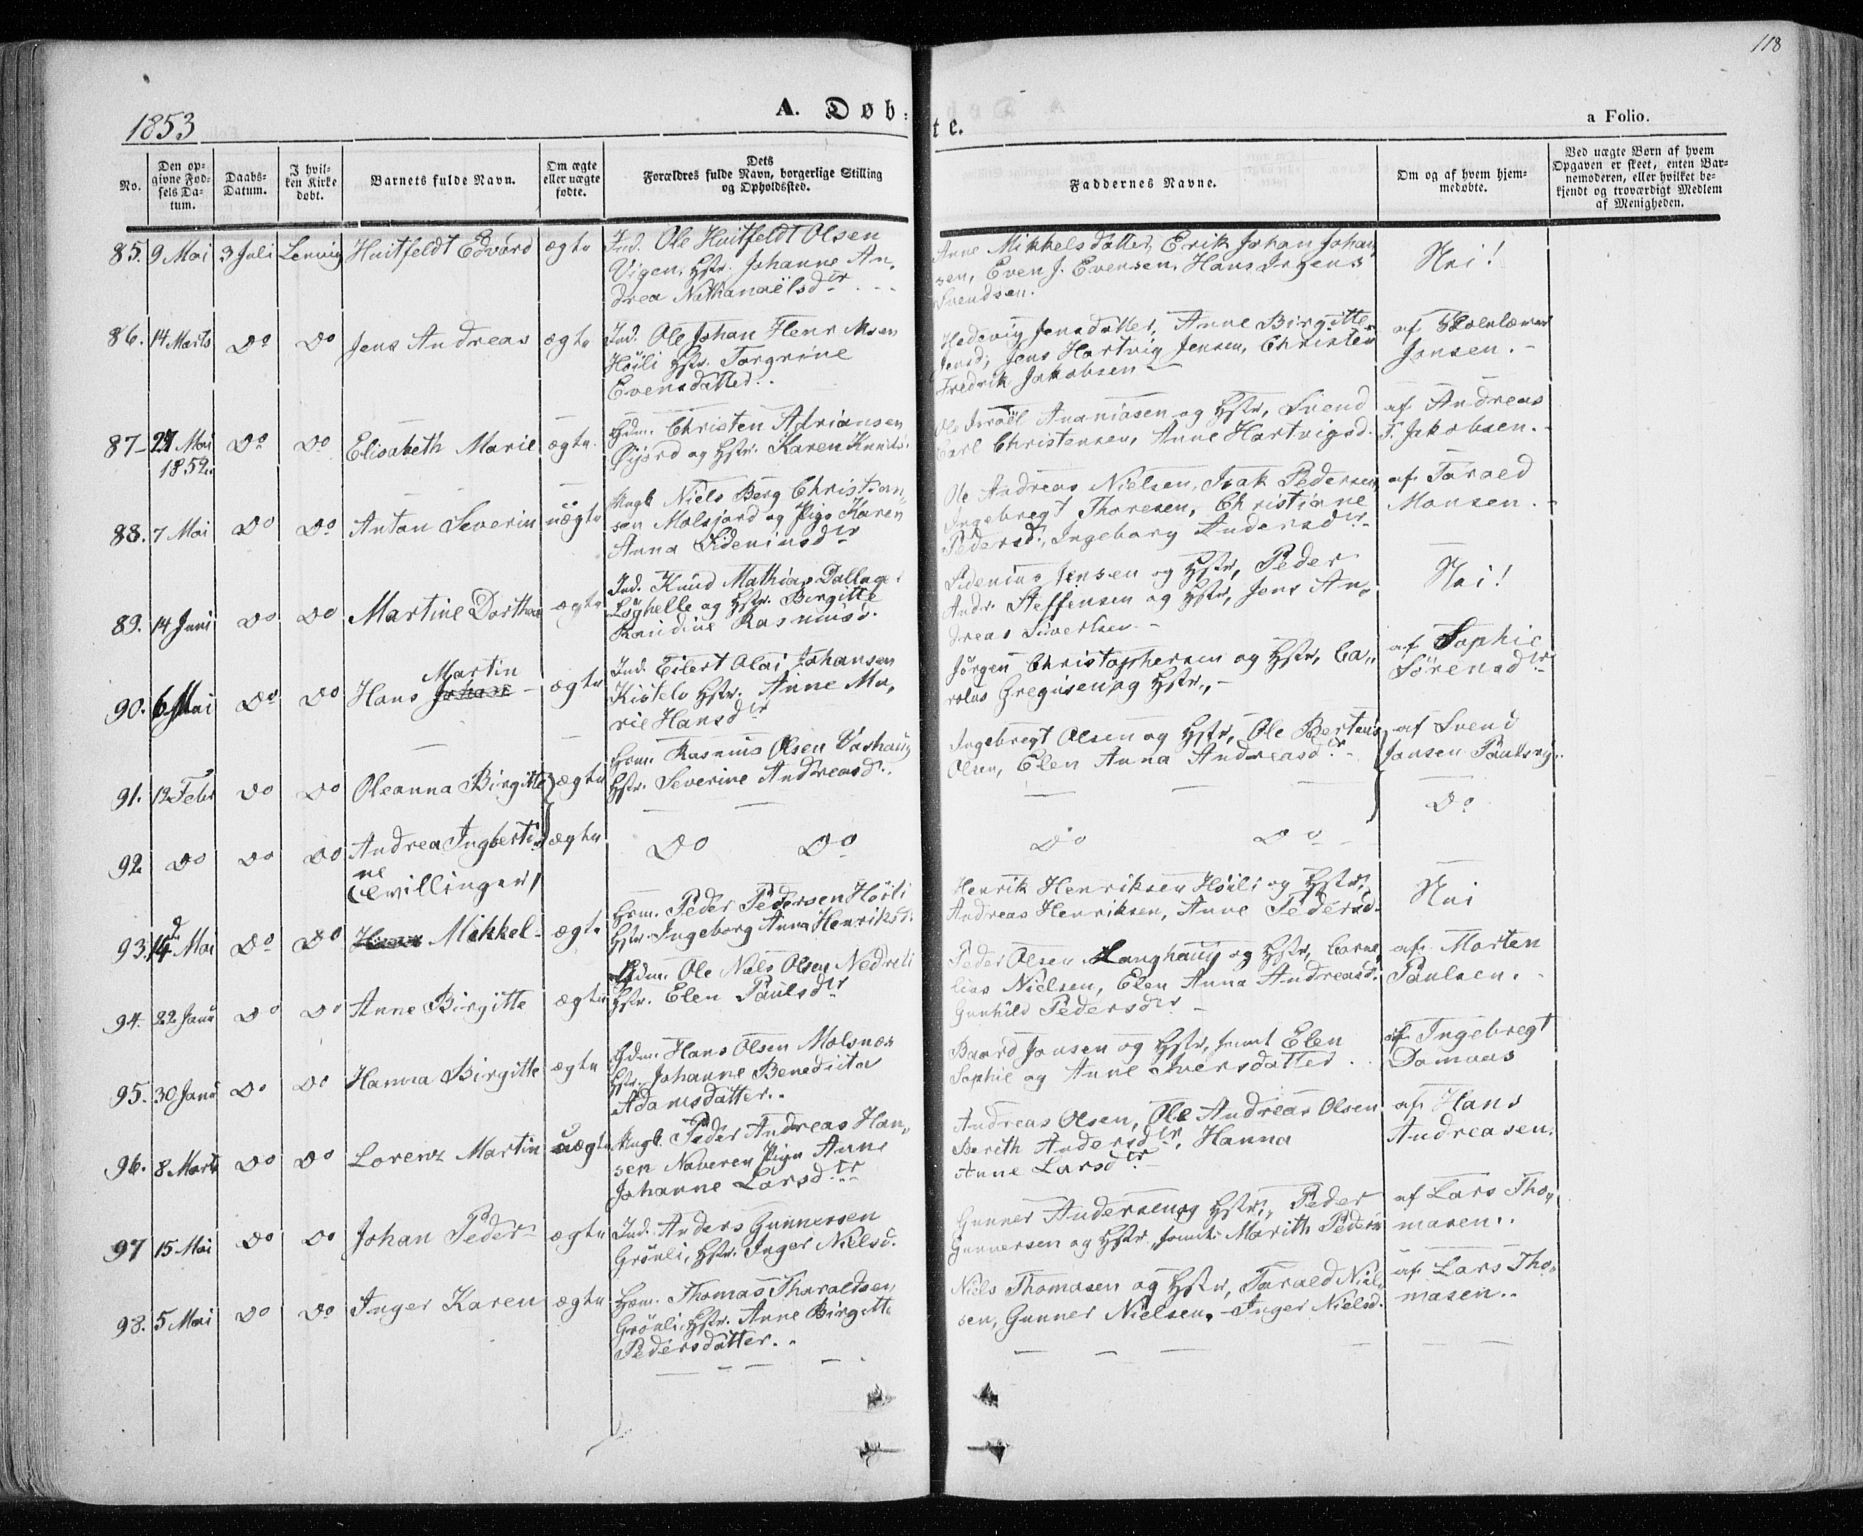 118
1853
A. Døb-
te.
a Folio.
No.
Den op-
givne Fød-
sels Da-
tum.
Daabs-
Datum.
I hvil-
ken Kirke
døbt.
Barnets fulde Navn.
Om ægte
eller uægte
fødte.
Dets
Forældres fulde Navn, borgerlige Stilling
og Opholdssted.
Faddernes Navne.
Om og af hvem hjem-
medøbte.
Ved uægte Børn af hvem
Opgaven er skeet, enten Bar-
nemoderen, eller hvilket be-
kjendt og troværdigt Medlem
af Menigheden.
85. 9 Mai 3 Juli Lenvig Huitfeldt Edvard ægte
Ind. Ole Huitfeldt Olsen
Vigen, Hstr. Johanne An-
drea Nathanaëlsdr
Anne Mikkelsdatter, Erik Johan Johan
sen, Even J. Evensen, Hans Jrgens
Svendsen.
Nei!
86. 14 Marts Do Do Jens Andreas ægte
Ind. Ole Johan Henr Moen
Høili Hstr. Torgrine
Evensdatter.
Hedevig Jensdatter, Anne Birgitte
Jensd; Jens Hartvig Jensen, Christen
Fredrik Jakobsen
af Skolelærer
Jensen.
87 27 Mai
1852. Do Do Elisabeth Marie ægte
Hdm. Christen Adriansen
Øijord og Hstr. Karen Knuds
Ole Israël Ananiasen og Hstr, Svend
Carl Christensen, Anne Hartvigsd.
af Andreas
F. Jakobsen.
88. 7 Mai Do Do Anton Severin uægte
Ungk Niels Berg Christian-
sen Molsjord og Pige Karen
Anna Sideniusdr
Ole Andreas Nielsen, Isak Pedersen,
Ingebregt Thoresen, Christiane
Pedersd, Ingeborg Andersdr
af Tarald
Monsen.
89. 14 Juni Do Do Martine Dorthea ægte
Ind. Knud Mathias Dallager
Løghelle og Hstr. Birgitte
Randine Rasmusd.
Sidenius Jensen og Hstr, Peder
Andr. Steffensen og Hstr, Jens An-
dreas Sivertsen
Nei!
90. 6 Mai Do Do Martin
Hans Johan ægte
Ind. Eilert Olai Johansen
Kistelv Hstr. Anne Ma,
rie Hansdr
Jørgen Christophersen og Hstr, Ca,,
rolus Gregusen og Hstr,
af Sophie
Sørensdr
91. 12 Febr Do Do Oleanna Birgitte ægte
Hom. Rasmus Olsen Vashaug
Hstr. Severine Andreasd.
Ingebregt Olsen og Hstr, Ole Bertens
Olsen, Elen Anna Andreasdr
af Svend
Jansen Paulsvig.
92. Do Do Do Andrea Ingberti-
ne
(Tvillinger) ægte
Do Do
Do Do
Do
93. 14 Mai Do Do Mikkel ægte
Hom. Peder Pedersen Høili
Hstr. Ingeborg Anna Henriksd.
Henrik Henriksen Høili og Hstr,
Andreas Henriksen, Anne Pedersd.
Nei
94. 22 Janu Do Do Anne Birgitte ægte
Hdm. Ole Niels Olsen Nedreli
Hstr. Elen Paulsdr
Peder Olsen Langhaug og Hstr, Corne,
lius Nielsen, Elen Anna Andreasd.
Gunhild Pedersdr
af Morten
Paulsen.
95. 30 Janu Do Do Hanna Birgitte ægte
Hdm. Hans Olsen Molsnes
Hstr. Johanne Benedicta
Adamsdatter.
Baard Jonsen og Hstr, samt Elen
Sophie og Anne Iversdatter
af Ingebregt
Domaas
96. 8 Marts Do Do Lorenz Martin uægte
Ungk. Peder Andreas Han,
sen Naveren Pige Anne
Johanne Larsdr
Andreas Olsen, Ole Andreas Olsen
Berith Andersdr, Hanna
Anne Larsdr
af Hans
Andreasen.
97 15 Mai Do Do Johan Peder ægte
Ind. Anders Gunnersen
Grønli, Hstr. Inger Nielsd.
Gunner Andersen og Hstr, Peder
Gunnersen og Hstr, samt Marith Peders
af Lars Tho,
masen.
98. 5 Mai Do Do Inger Karen ægte
Hom. Thomas Tharaldsen
Grønli, Hstr. Anne Birgitte
Pedersdatter.
Niels Thomasen og Hstr, Tarald Niel
sen, Gunner Nielsen, Inger Nielsd.
af Lars Tho,
masen.